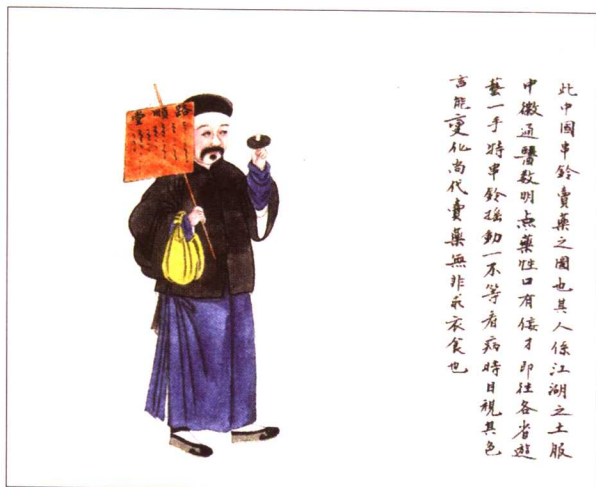 此中國串鈴賣藥之圖也其人係江湖之士服
中微通醫数明点藥性口有佞才即往各省遊
藝一手持串鈴摇動一不等看病時目視其色
言能變化尚代賣藥無非求衣食也
路順堂